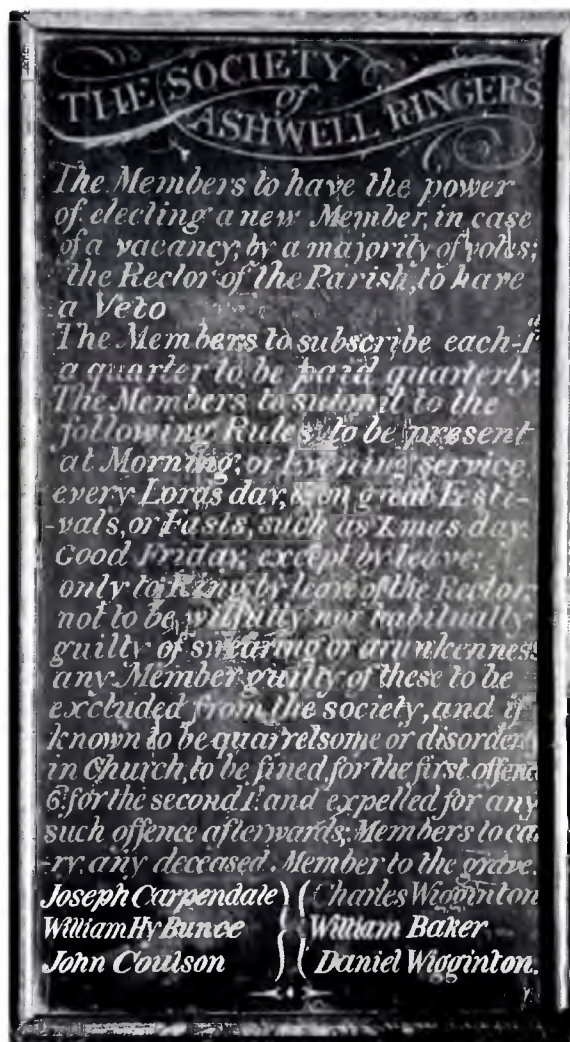 THE SOCIETY
of
ASHWELL RINGERS
The Members to have the power
of electing a new Member, in case
of a vacancy, by a majority of votes;
the Rector of the Parish, to have
a Veto
The Members to subscribe each 1ˢ
a quarter to be paid quarterly.
The Members to submit to the
following Rules, to be present
at Morning, or Evening service
every Lords day, & on great Festi-
-vals, or Fasts, such as Xmas day.
Good Friday, except by leave;
only to Ring by leave of the Rector;
not to be wilfully nor habitually
guilty of swearing or drunkenness
any Member guilty of these to be
excluded from the society, and if
known to be quarrelsome or disorder
in Church, to be fined, for the first offence
6ᵈ for the second 1ˢ and expelled for any
such offence afterwards; Members to car
-ry, any deceased Member to the grave.
Joseph Carpendale Charles Wigginton
William Hy Bunce William Baker
John Coulson Daniel Wigginton.